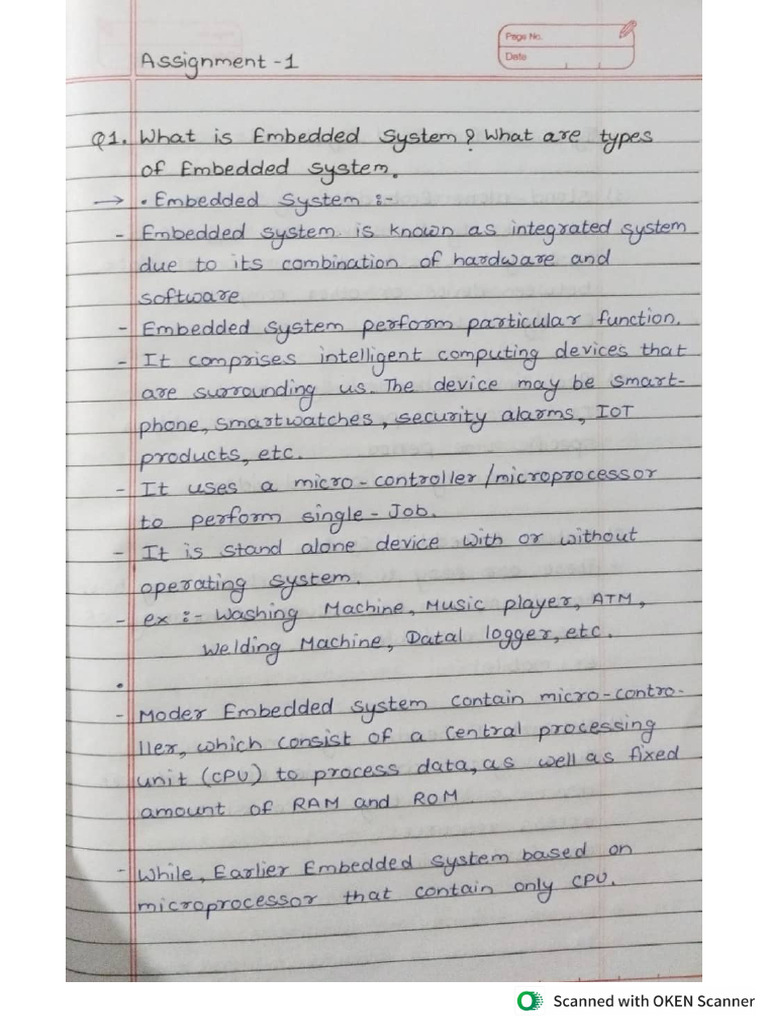 Page No.
Date
Assignment -1
Q1. What is Embedded System? What are types
of Embedded system.
→ • Embedded System :-
- Embedded system is known as integrated system
due to its combination of hardware and
software
- Embedded system perform particular function.
- It comprises intelligent computing devices that
are surrounding us. The device may be smart-
phone, smartwatches, security alarms, IOT
products, etc.
- It uses a micro-controller/microprocessor
to perform single-Job.
- It is stand alone device with or without
operating system.
- ex :- Washing Machine, Music player, ATM,
Welding Machine, Datal logger, etc.
•
- Moder Embedded system contain micro-contro-
ller, which consist of a central processing
unit (CPU) to process data, as well as fixed
amount of RAM and ROM
- While, Earlier Embedded system based on
microprocessor that contain only CPU.
Scanned with OKEN Scanner